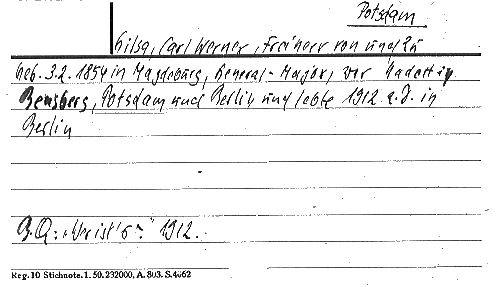 Potsdam
Gilsa, Carl Werner, Freiherr von und zu
geb. 3.2. 1854 in Magdeburg, General-Major, war Kadett in
Bensberg, Potsdam und Berlin und lebte 1912 a.D. in
Berlin
B.Q.: „Wer ist's“ 1912.
Reg. 10 Stichnote. 1. 50. 232000, A. 803. S. 4062